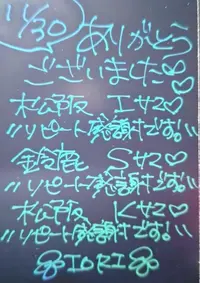 11/30 ありがとう
ございました♡
松阪 Iサマ♡
"リピート感謝です!"
鈴鹿 Sサマ♡
"リピート感謝です!"
松阪 Kサマ♡
"リピート感謝です!"
IORI